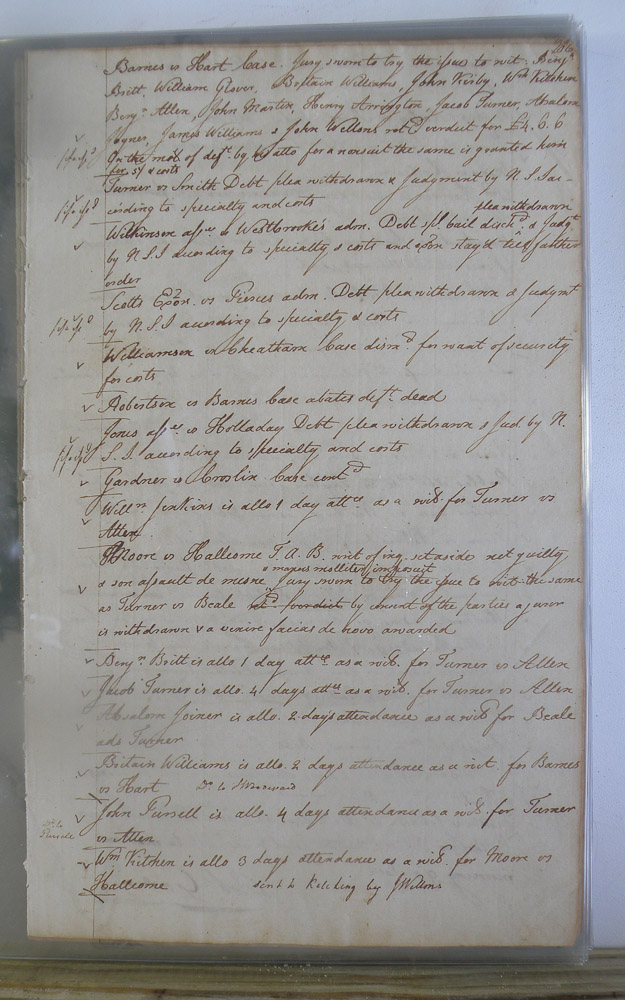 Barnes vs Hart Case. Jury sworn to try the issue to wit. Benjn
Britt, William Glover, Britain Williams, John Kirby, Wm Kitchen
Benjn Allen, John Martin, Henry Arrington, Jacob Turner, Absalom
Joyner, James Williams & John Wellons retd verdict for £4.6.6
On the mot. of deft. by his atto for a nonsuit the same is granted him
for 5/ & costs
Turner vs Smith Debt plea withdrawn & Judgment by N. S. I ac-
cording to specialty and costs
plea withdrawn
Wilkinson assee vs Westbrooke's adm. Debt spl. bail dischd. & Judgt
by N. S. I according to specialty & costs and exon stayd till further
order
Scotts Exor. vs Pierces adm. Debt plea withdrawn & Judgmt
by N. S. I according to specialty & costs
Williamson vs Cheatham Case dismd for want of security
for costs
Robertson vs Barnes Case abates deft. dead
Jones assee vs Holladay Debt plea withdrawn & Jud by N.
S. I according to specialty and costs
Gardner vs Croslin Case contd
Willm Jenkins is allo 1 day attce as a wit. for Turner vs
Allen
Moore vs Hallcome T. A. B. writ of inq. set aside not guilty
& molliter imposuit
& son assault de mesne, Jury sworn to try the issue to wit the same
as Turner vs Beale retd. for deft by consent of the parties a juror
is withdrawn & a venire facias de novo awarded
Benjn Britt is allo 1 day attce as a wit. for Turner vs Allen
Jacob Turner is allo. 4 days attce as a wit. for Turner vs Allen
Absalom Joiner is allo. 2 days attendance as a wit for Beale
ads Turner
Britain Williams is allo. 2 days attendance as a wit. for Barnes
vs Hart Dd to
John Pursell is allo. 4 days attendance as a wit. for Turner
vs Allen
Dd to
Pursell
Wm Kitchen is allo 3 days attendance as a wit. for Moore vs
Hallcome sent to Kitching by JWellons